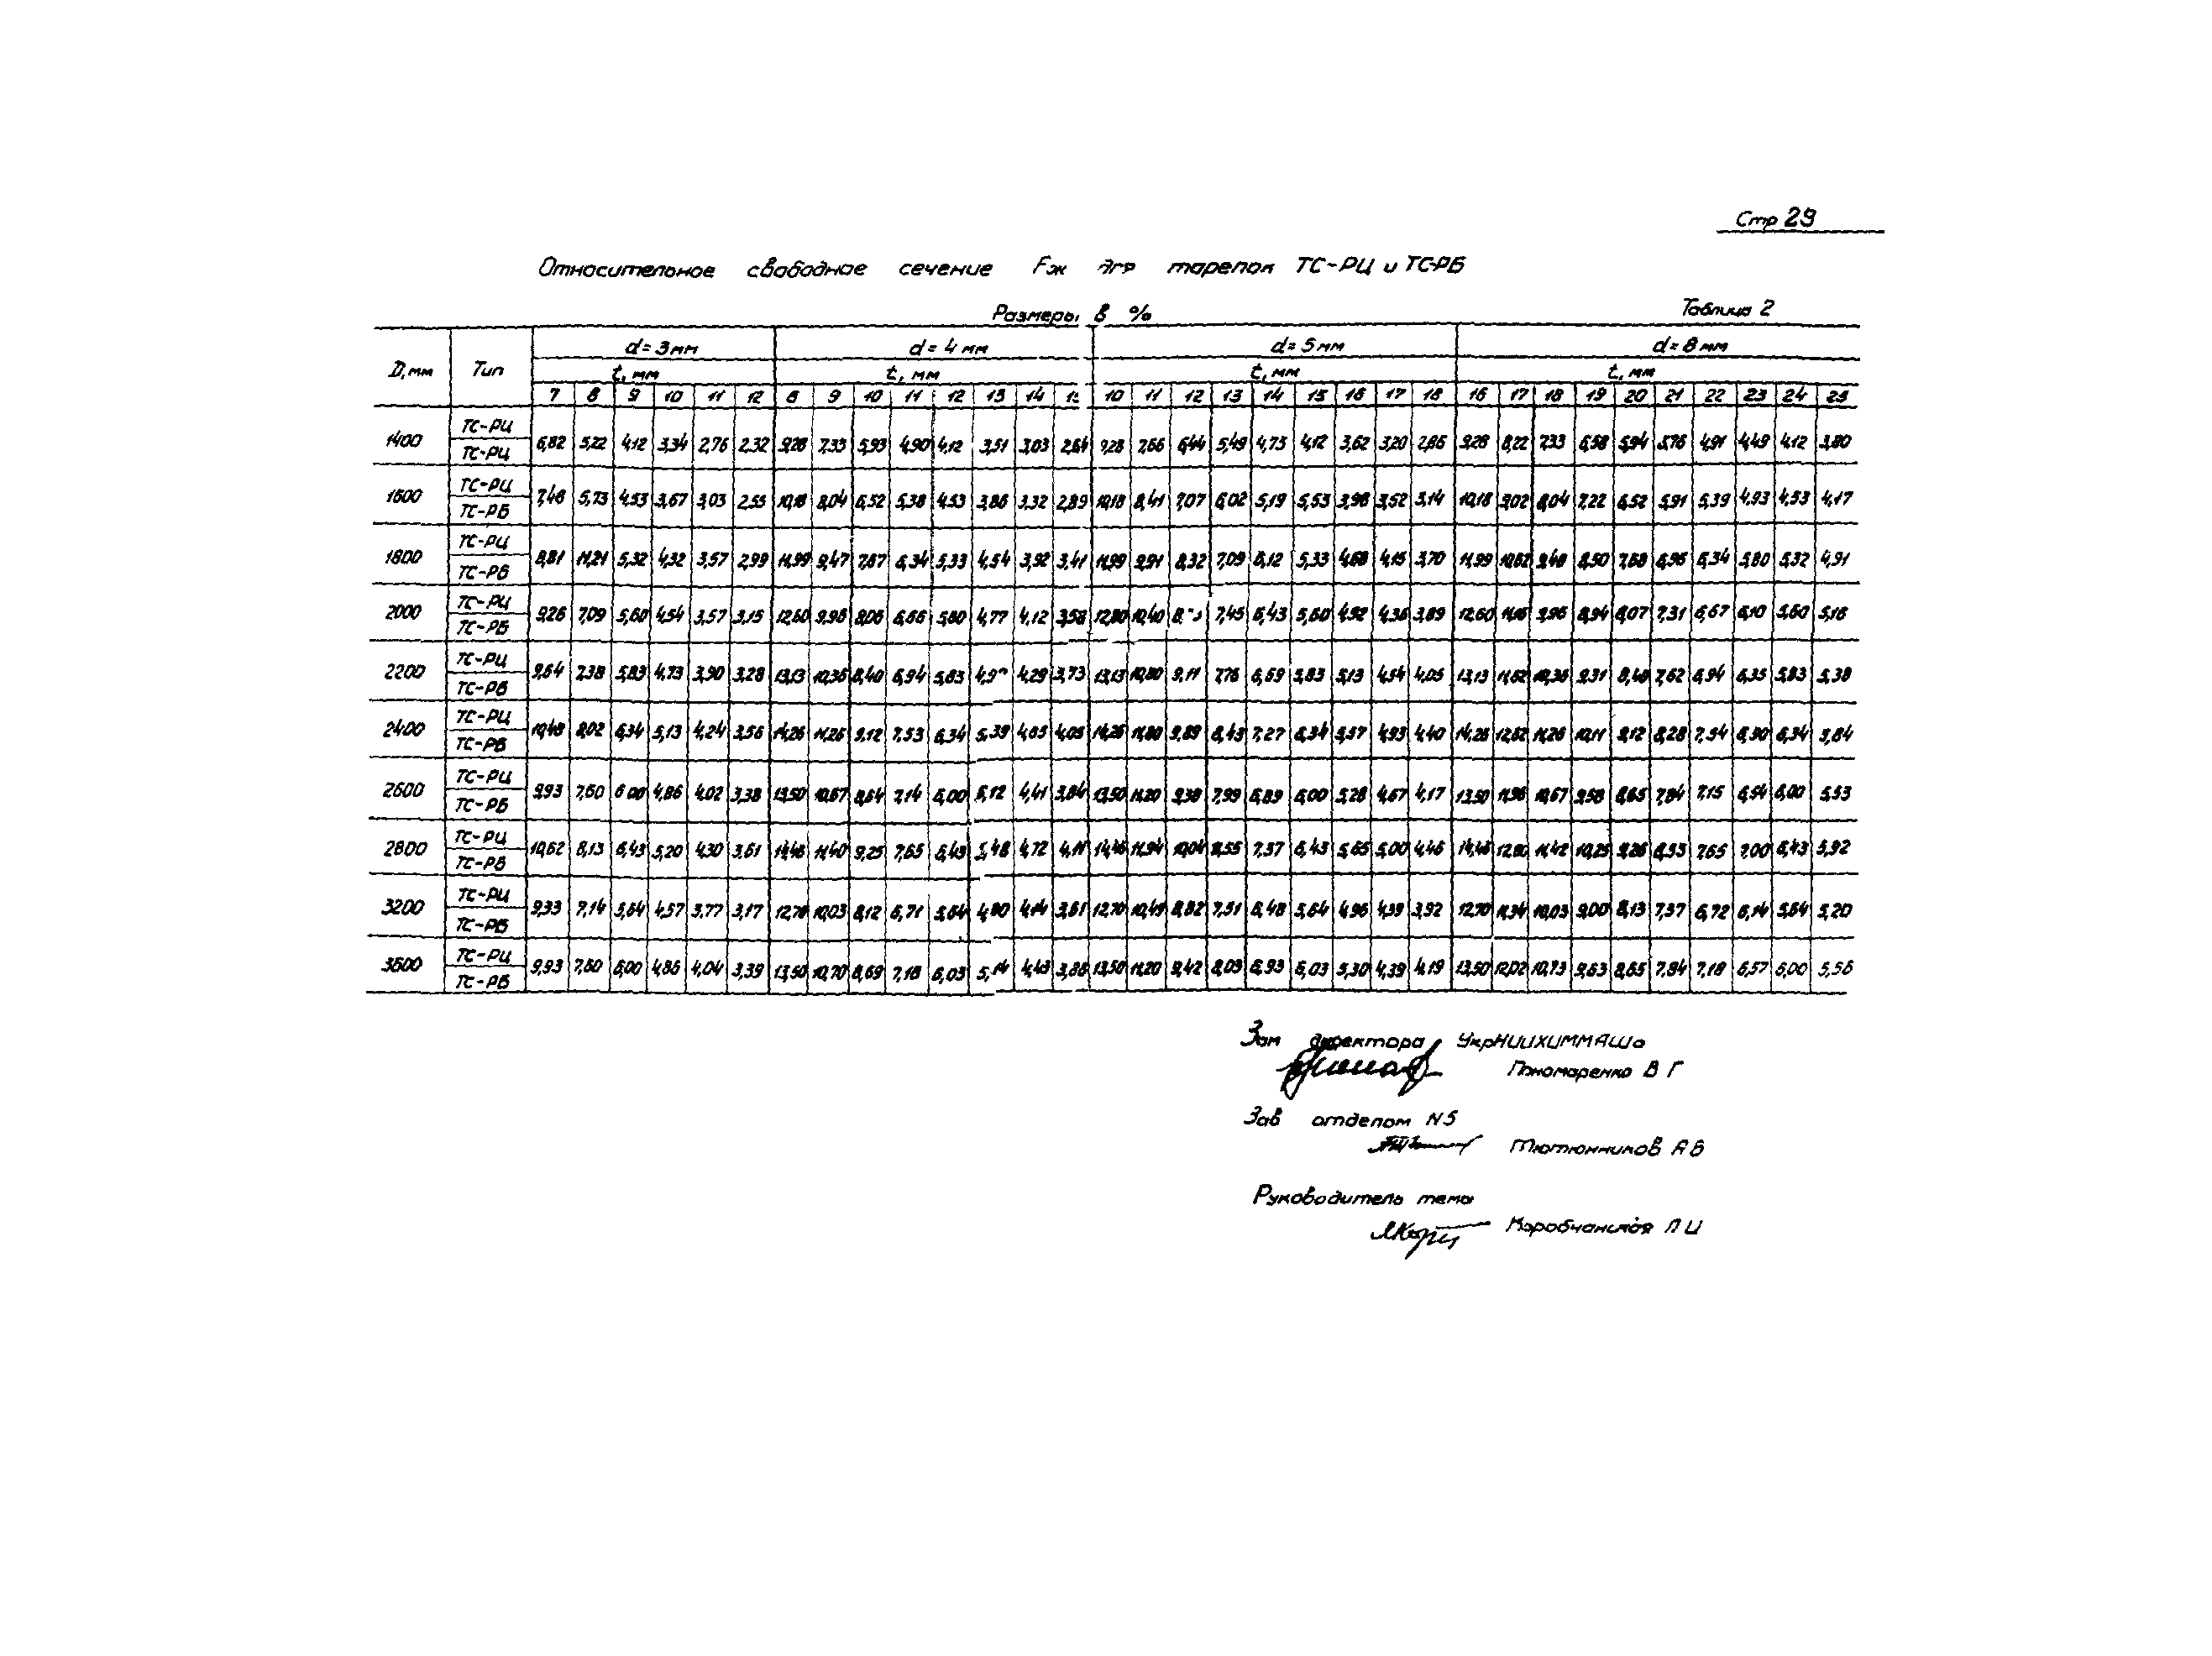 Стр 29
Относительное свободное сечение Fж для тарелок ТС-РЦ и ТС-РБ
Размеры в %
Таблица 2
D, мм Тип d=3мм d=4 мм d=5мм d=8мм
t, мм t, мм t, мм t, мм
7 8 9 10 11 12 8 9 10 11 12 13 14 10 11 12 13 14 15 16 17 18 16 17 18 19 20 21 22 23 24 25
1400 ТС-РЦ
ТС-РЦ
6,82 5,22 4,12 3,34 2,76 2,32 9,28 7,33 5,93 4,90 4,12 3,51 3,03 2,64 9,28 7,66 6,44 5,49 4,73 4,12 3,62 3,20 2,86 9,28 8,22 7,33 6,58 5,94 5,76 4,91 4,49 4,12 3,80
1600 ТС-РЦ
ТС-РБ
7,48 5,73 4,53 3,67 3,03 2,55 10,18 8,04 6,52 5,38 4,53 3,86 3,32 2,89 10,18 8,41 7,07 6,02 5,19 5,53 3,98 3,52 3,14 10,18 9,02 8,04 7,22 6,52 5,91 5,39 4,93 4,53 4,17
1800 ТС-РЦ
ТС-РБ
8,81 11,21 5,32 4,32 3,57 2,99 11,99 9,47 7,67 6,34 5,33 4,54 3,92 3,41 11,99 9,91 8,32 7,09 6,12 5,33 4,68 4,15 3,70 11,99 10,62 9,48 8,50 7,68 6,96 6,34 5,80 5,32 4,91
2000 ТС-РЦ
ТС-РБ
9,26 7,09 5,60 4,54 3,57 3,15 12,60 9,96 8,06 6,66 5,60 4,77 4,12 3,58 12,60 10,40 7,45 6,43 5,60 4,92 4,36 3,89 12,60 11,16 9,96 8,94 8,07 7,31 6,67 6,10 5,60 5,16
2200 ТС-РЦ
ТС-РБ
9,64 7,38 5,83 4,73 3,90 3,28 13,13 10,36 8,40 6,94 5,83 4,29 3,73 13,13 10,80 9,11 7,76 6,69 5,83 5,13 4,54 4,05 13,13 11,62 10,36 9,31 8,40 7,62 6,94 6,35 5,83 5,38
2400 ТС-РЦ
ТС-РБ
10,48 8,02 6,34 5,13 4,24 3,56 14,26 11,26 9,12 7,53 6,34 5,39 4,65 4,05 14,26 11,80 9,89 8,43 7,27 6,34 5,57 4,93 4,40 14,26 12,62 11,26 10,11 9,12 8,28 7,54 6,90 6,34 5,84
2600 ТС-РЦ
ТС-РБ
9,93 7,60 6,00 4,86 4,02 3,38 13,50 10,67 8,64 7,14 6,00 5,12 4,41 3,84 13,50 11,20 9,38 7,99 6,89 6,00 5,28 4,67 4,17 13,50 11,96 10,67 9,58 8,65 7,84 7,15 6,54 6,00 5,53
2800 ТС-РЦ
ТС-РБ
10,62 8,13 6,43 5,20 4,30 3,61 14,46 11,40 9,25 7,65 6,43 5,48 4,72 4,11 14,46 11,94 10,04 8,55 7,37 6,43 5,65 5,00 4,46 14,46 12,80 11,42 10,25 9,26 8,33 7,65 7,00 6,43 5,92
3200 ТС-РЦ
ТС-РБ
9,33 7,14 5,64 4,57 3,77 3,17 12,70 10,03 8,12 6,71 5,64 4,80 4,14 3,61 12,70 10,49 8,82 7,51 6,48 5,64 4,96 4,39 3,92 12,70 11,34 10,03 9,00 8,13 7,37 6,72 6,14 5,64 5,20
3600 ТС-РЦ
ТС-РБ
9,93 7,60 6,00 4,86 4,04 3,39 13,50 10,70 8,69 7,18 6,03 5,14 4,43 3,86 13,50 11,20 9,42 8,03 6,93 6,03 5,30 4,39 4,19 13,50 12,02 10,73 9,63 8,65 7,84 7,18 6,57 6,00 5,56
Зам директора УкрНИИХИММАШа
Пономаренко В Г
Зав отделом N5
Тютюнников А Б
Руководитель темы
Коробчанская Л И